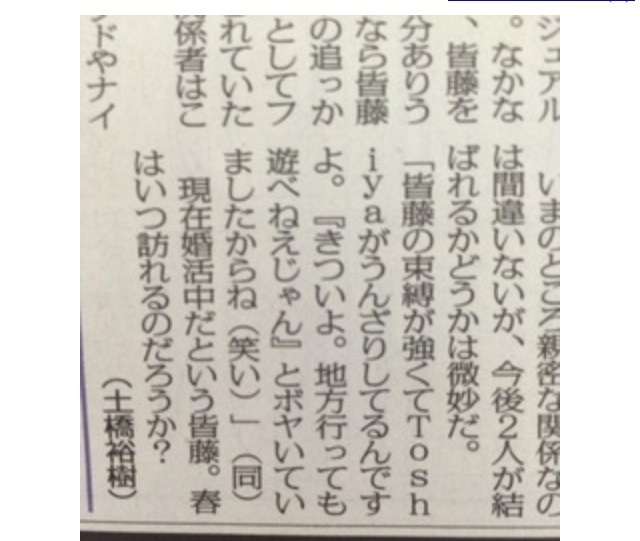 ジュアル
。なかな
、皆藤を
分ありう
なら皆藤
の追っか
としてフ
れていた
係者はこ
ドやナイ
いまのところ親密な関係なの
は間違いないが、今後2人が結
ばれるかどうかは微妙だ。
「皆藤の束縛が強くてTosh
iyaがうんざりしてるんです
よ。『きついよ。地方行っても
遊べねえじゃん』とボヤいてい
ましたからね(笑い)」(同)
現在婚活中だという皆藤。春
はいつ訪れるのだろうか?
(土橋裕樹)